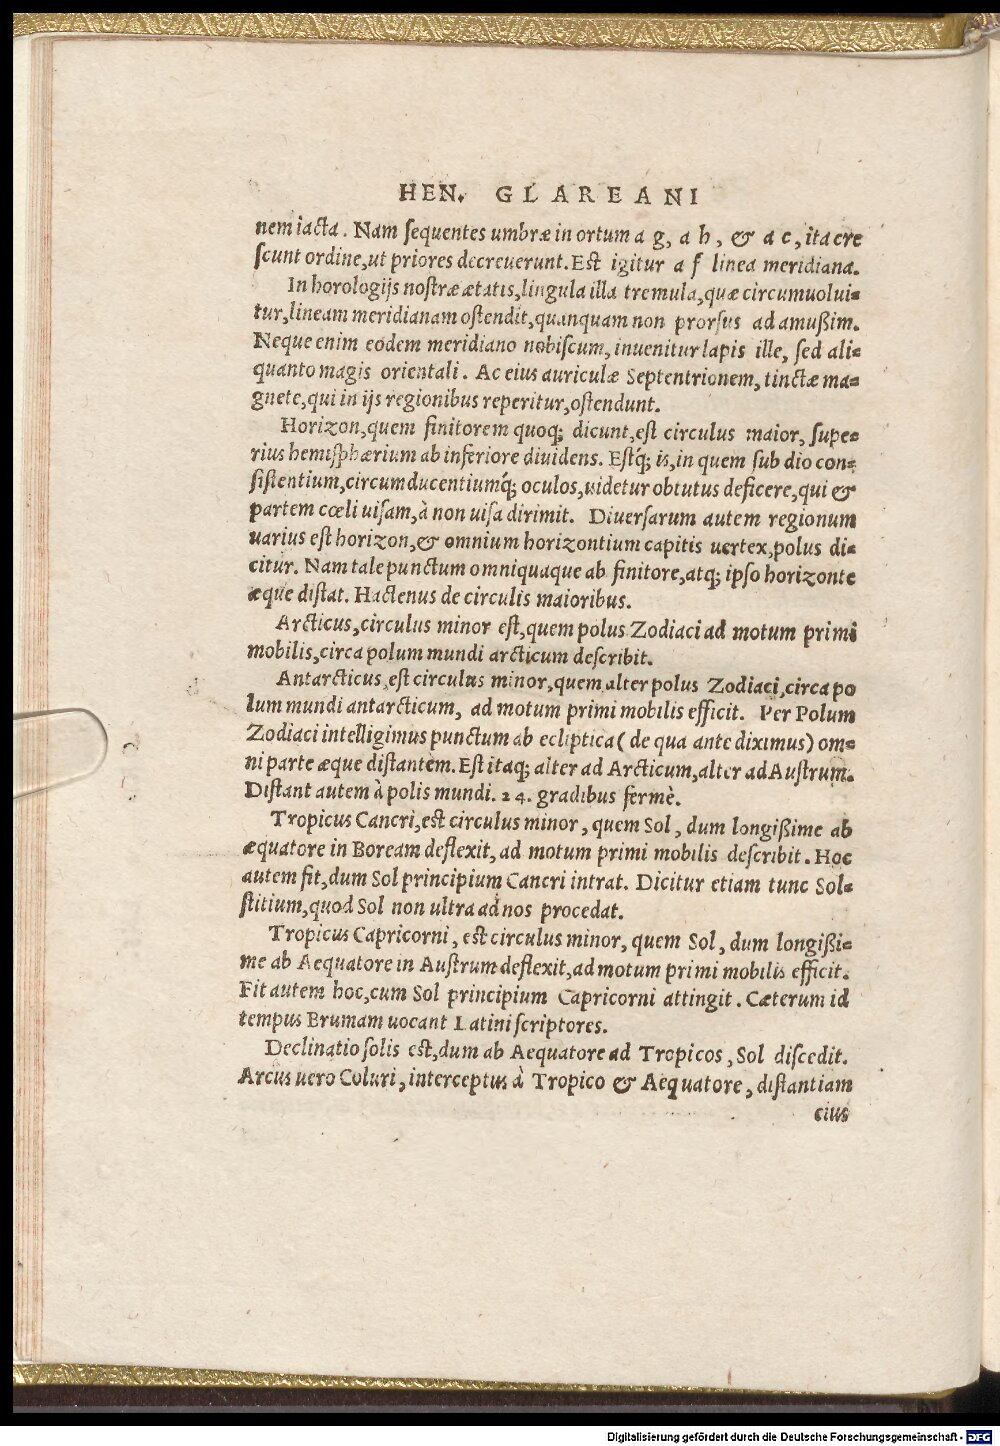 HEN. GLAREANI
nem iacta. Nam sequentes umbræ in ortum a g, a h, & a c, ita cre
scunt ordine, ut priores decreuerunt. Est igitur a f linea meridiana.
In horologijs nostræ ætatis, lingula illa tremula, quæ circumuolui-
tur, lineam meridianam ostendit, quanquam non prorsus ad amußim.
Neque enim eodem meridiano nobiscum, inuenitur lapis ille, sed ali-
quanto magis orientali. Ac eius auriculæ Septentrionem, tinctæ ma-
gnete, qui in ijs regionibus reperitur, ostendunt.
Horizon, quem finitorem quoq; dicunt, est circulus maior, supe-
rius hemisphærium ab inferiore diuidens. Estq́; is, in quem sub dio con-
sistentium, circumducentiumq́; oculos, uidetur obtutus deficere, qui &
partem cœli uisam, à non uisa dirimit. Diuersarum autem regionum
uarius est horizon, & omnium horizontium capitis uertex, polus di-
citur. Nam tale punctum omniquaque ab finitore, atq; ipso horizonte
æque distat. Hactenus de circulis maioribus.
Arcticus, circulus minor est, quem polus Zodiaci ad motum primi
mobilis, circa polum mundi arcticum describit.
Antarcticus, est circulus minor, quem alter polus Zodiaci, circa po
lum mundi antarcticum, ad motum primi mobilis efficit. Per Polum
Zodiaci intelligimus punctum ab ecliptica (de qua ante diximus) om-
ni parte æque distantem. Est itaq; alter ad Arcticum, alter ad Austrum.
Distant autem à polis mundi. 24. gradibus fermè.
Tropicus Cancri, est circulus minor, quem Sol, dum longißime ab
æquatore in Boream deflexit, ad motum primi mobilis describit. Hoc
autem fit, dum Sol principium Cancri intrat. Dicitur etiam tunc Sol-
stitium, quod Sol non ultra ad nos procedat.
Tropicus Capricorni, est circulus minor, quem Sol, dum longißi-
me ab Aequatore in Austrum deflexit, ad motum primi mobilis efficit.
Fit autem hoc, cum Sol principium Capricorni attingit. Cæterum id
tempus Brumam uocant Latini scriptores.
Declinatio solis est, dum ab Aequatore ad Tropicos, Sol discedit.
Arcus uero Coluri, interceptus à Tropico & Aequatore, distantiam
eius
Digitalisierung gefördert durch die Deutsche Forschungsgemeinschaft - DFG